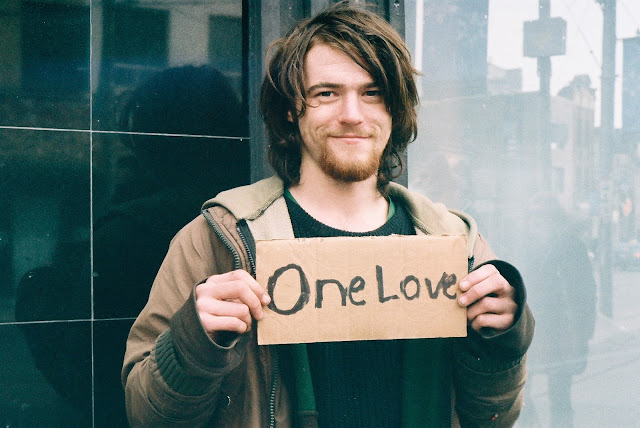 One Love